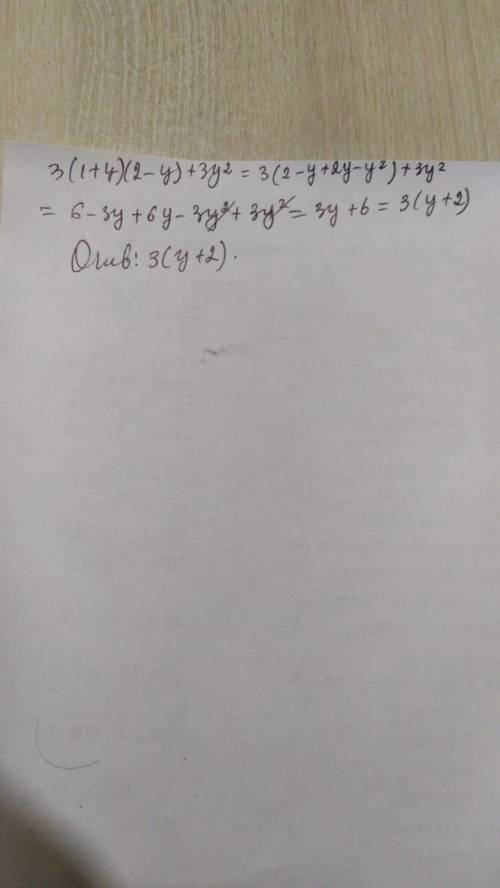 3(1+4)(2-y)+3y² = 3(2-y+2y-y²)+3y²
= 6-3y+6y-3y²+3y² = 3y+6 = 3(y+2)
Отв: 3(y+2).